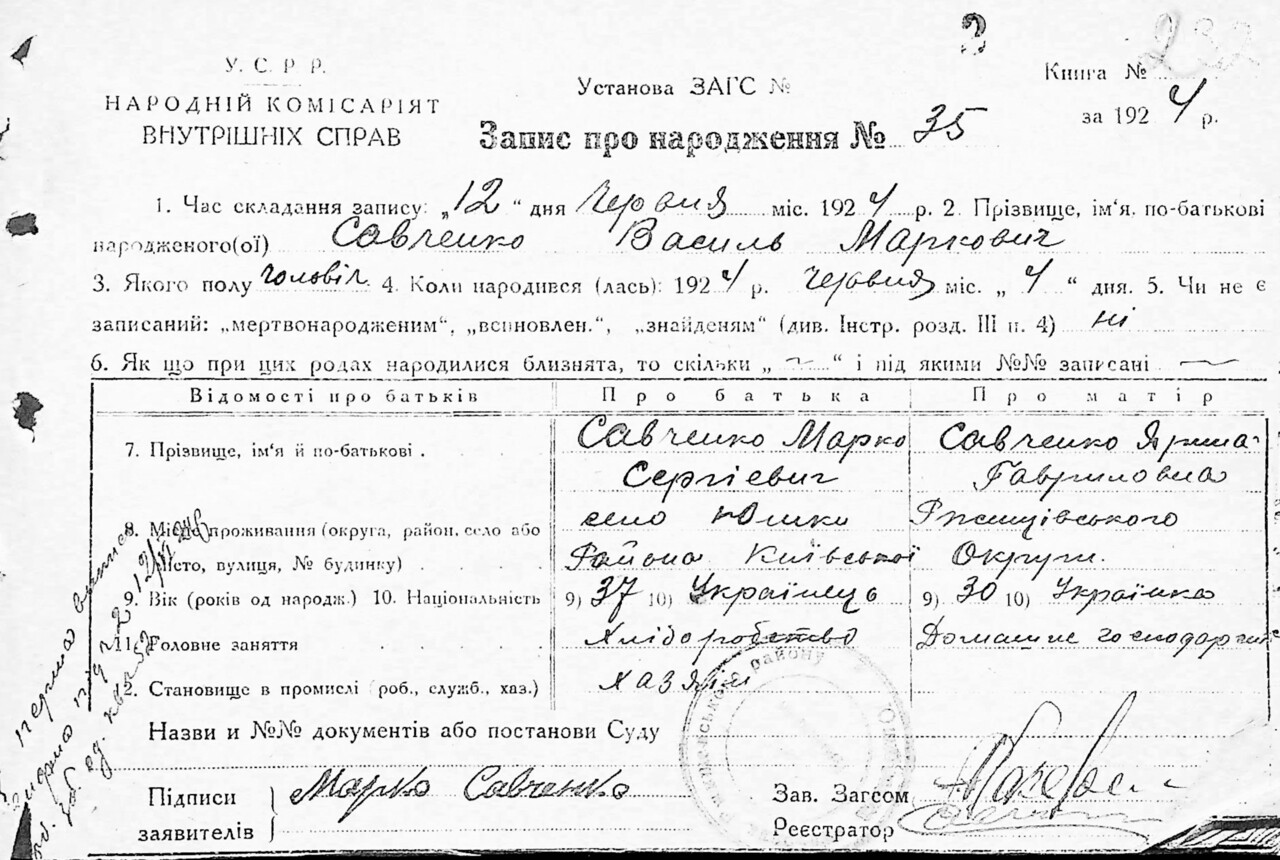 232
У. С. Р. Р.
НАРОДНІЙ КОМІСАРІЯТ
ВНУТРІШНІХ СПРАВ
Установа ЗАГС №
Книга №
за 1924 р.
Запис про народження № 35
1. Час складання запису: „12“ дня Червня міс. 1924 р. 2. Прізвище, ім‘я, по-батькові
народженого(ої) Савченко Василь Маркович
3. Якого полу чоловіч. 4. Коли народився (лась): 1924 р. червня міс. „4“ дня. 5. Чи не є
записаний: „мертвонародженим“, „всиновлен.“, „знайденям“ (див. Інстр. розд. III п. 4) ні
6. Як що при цих родах народилися близнята, то скільки „ ~ “ і під якими №№ записані —
Відомості про батьків Про батька Про матір
7. Прізвище, ім‘я й по-батькові . Савченко Марко Савченко Ярина
Сергієвич Гавриловна
8. Місце проживання (округа, район, село або село Юшки Ржищівського
місто, вулиця, № будинку) Района Київської Округи.
9. Вік (років од народж.) 10. Національність 9) 37 10) Українець 9) 30 10) Українка
11. Головне заняття Хліборобство Домашне
12. Становище в промислі (роб., служб., хаз.) хазяїн
Назви и №№ документів або постанови Суду
району
Підписи заявителів Марко Савченко
Зав. Загсом
Реєстратор